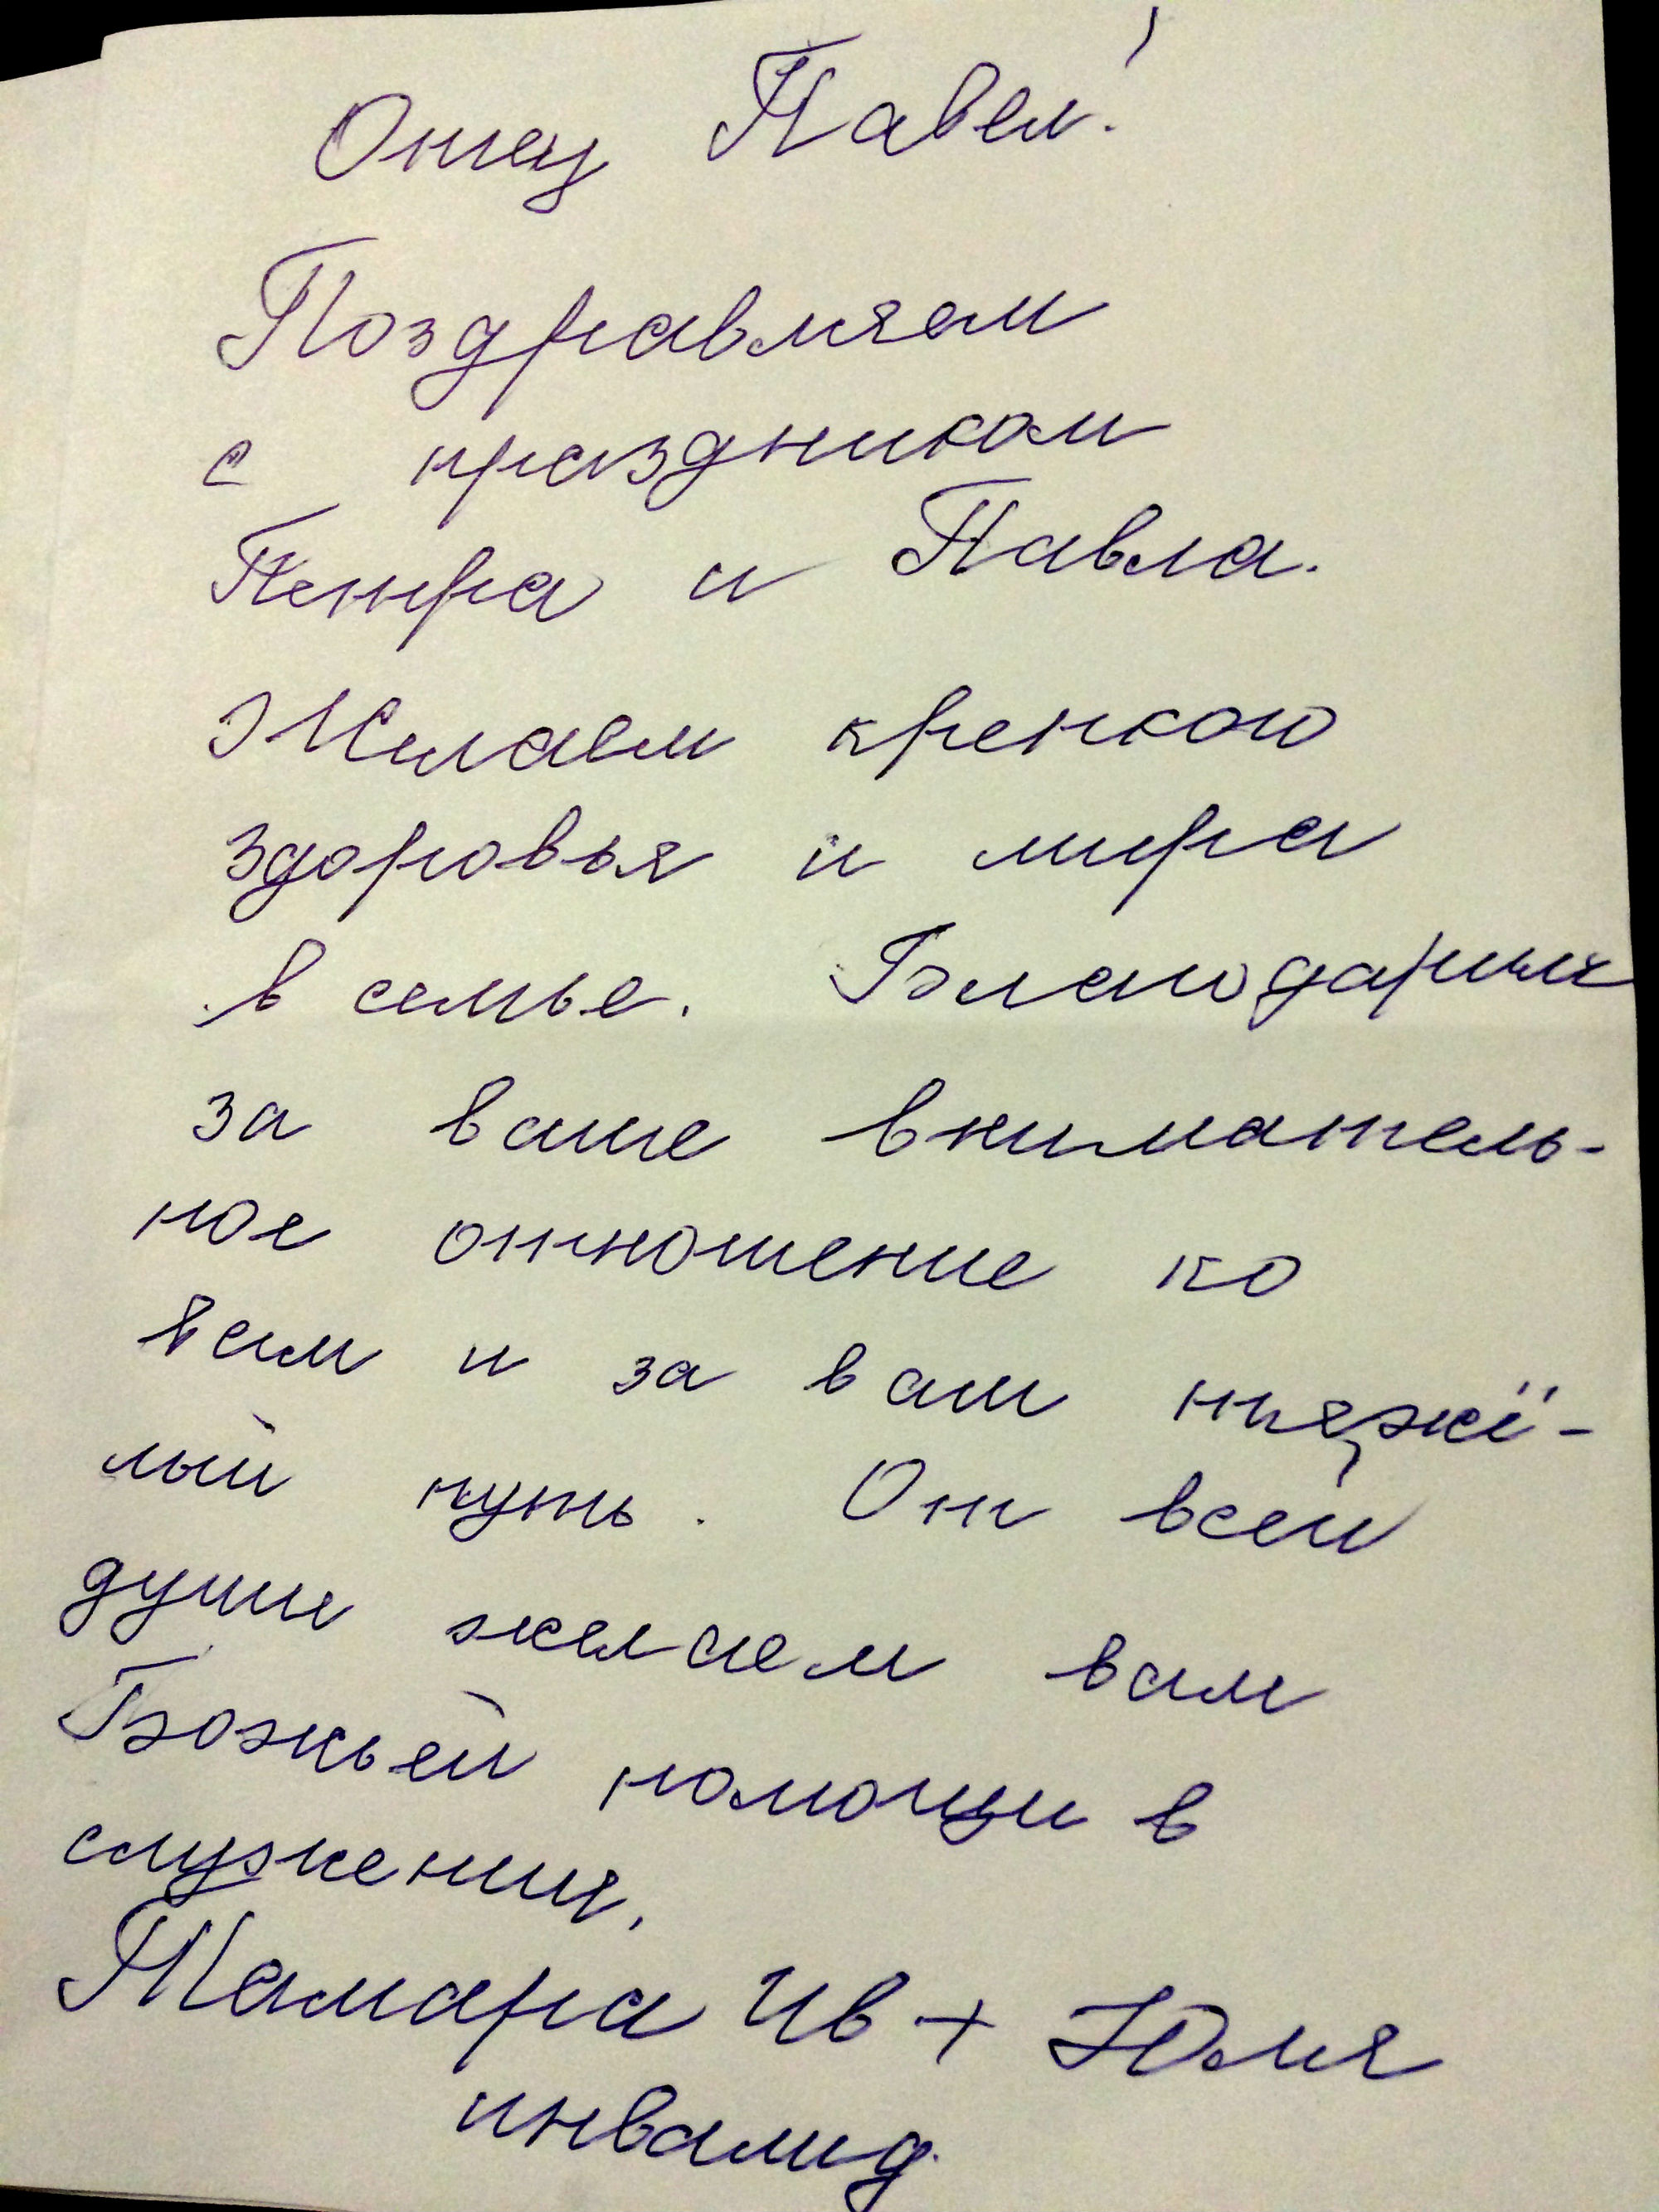 Отец Павел!
Поздравляем
с праздником
Петра и Павла.
Желаем крепкого
здоровья и мира
в семье. Благодарим
за ваше вниматель-
ное отношение ко
всем и за ваш тяжё-
лый путь. От всей
души желаем вам
Божьей помощи в
служении.
Тамара Ив + Юля
инвалид.